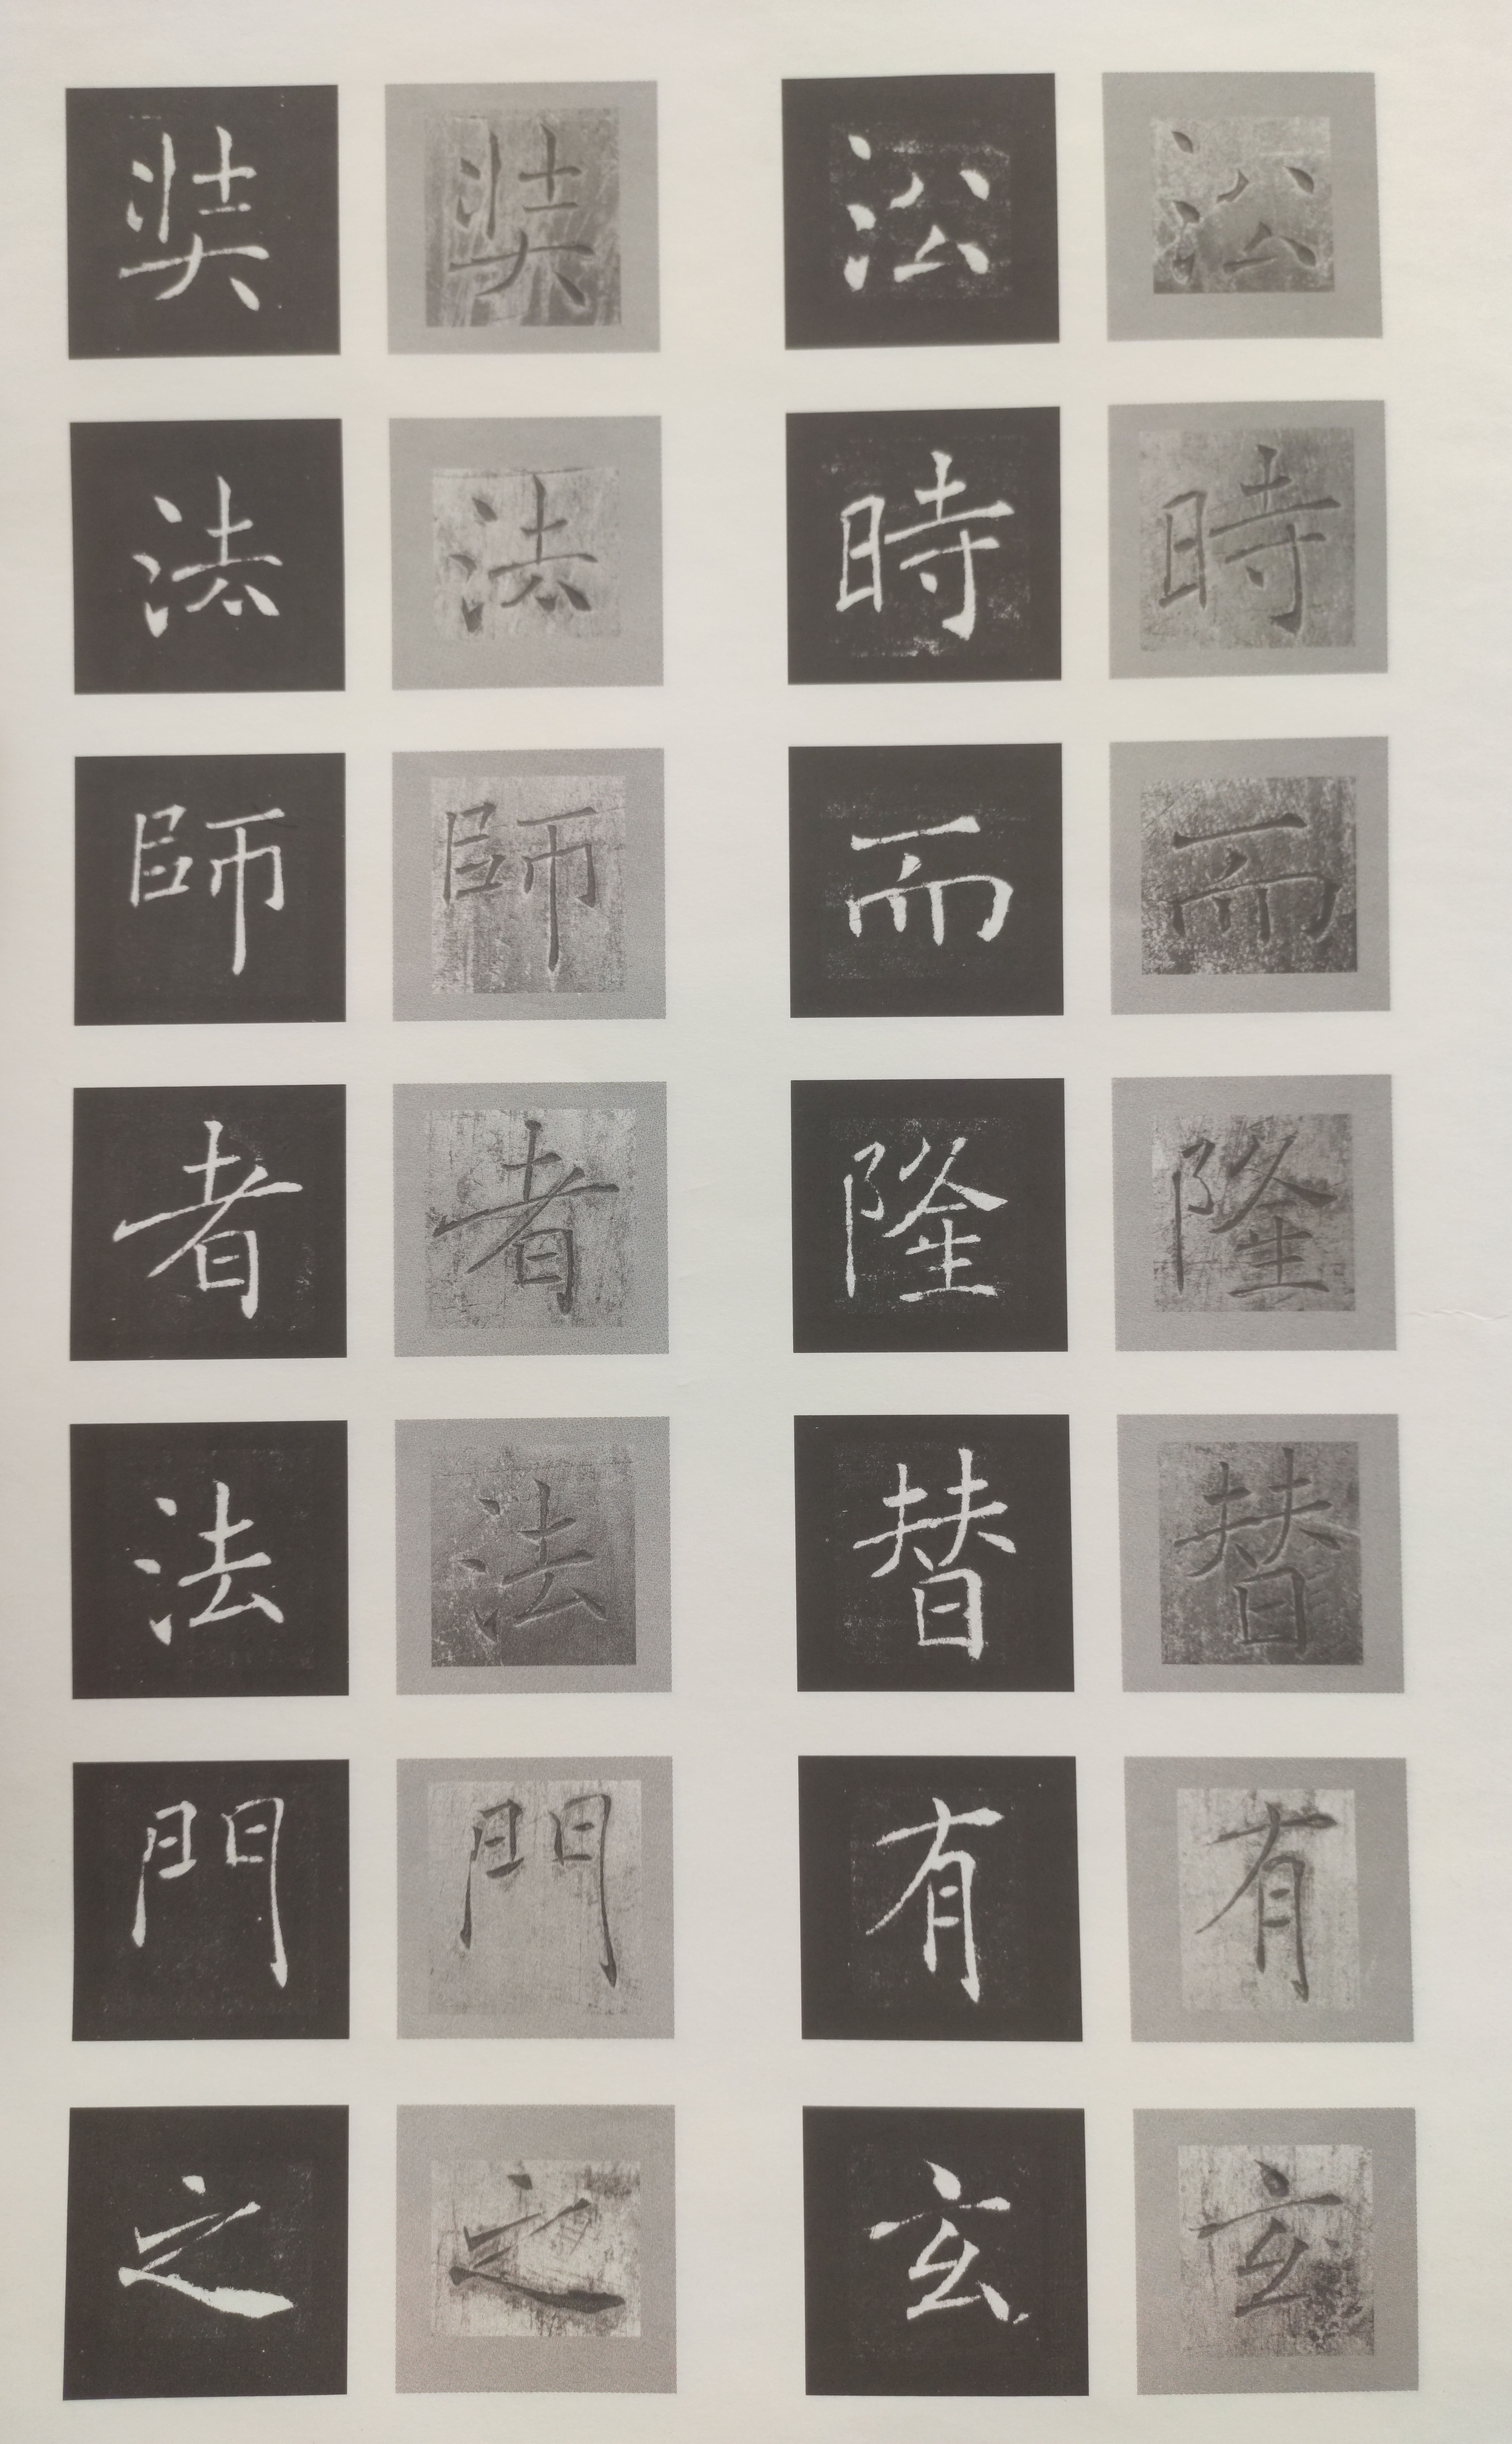 㳂時而隆替有玄
㳂時而隆替有玄
奘法師者法門之
奘法師者法門之